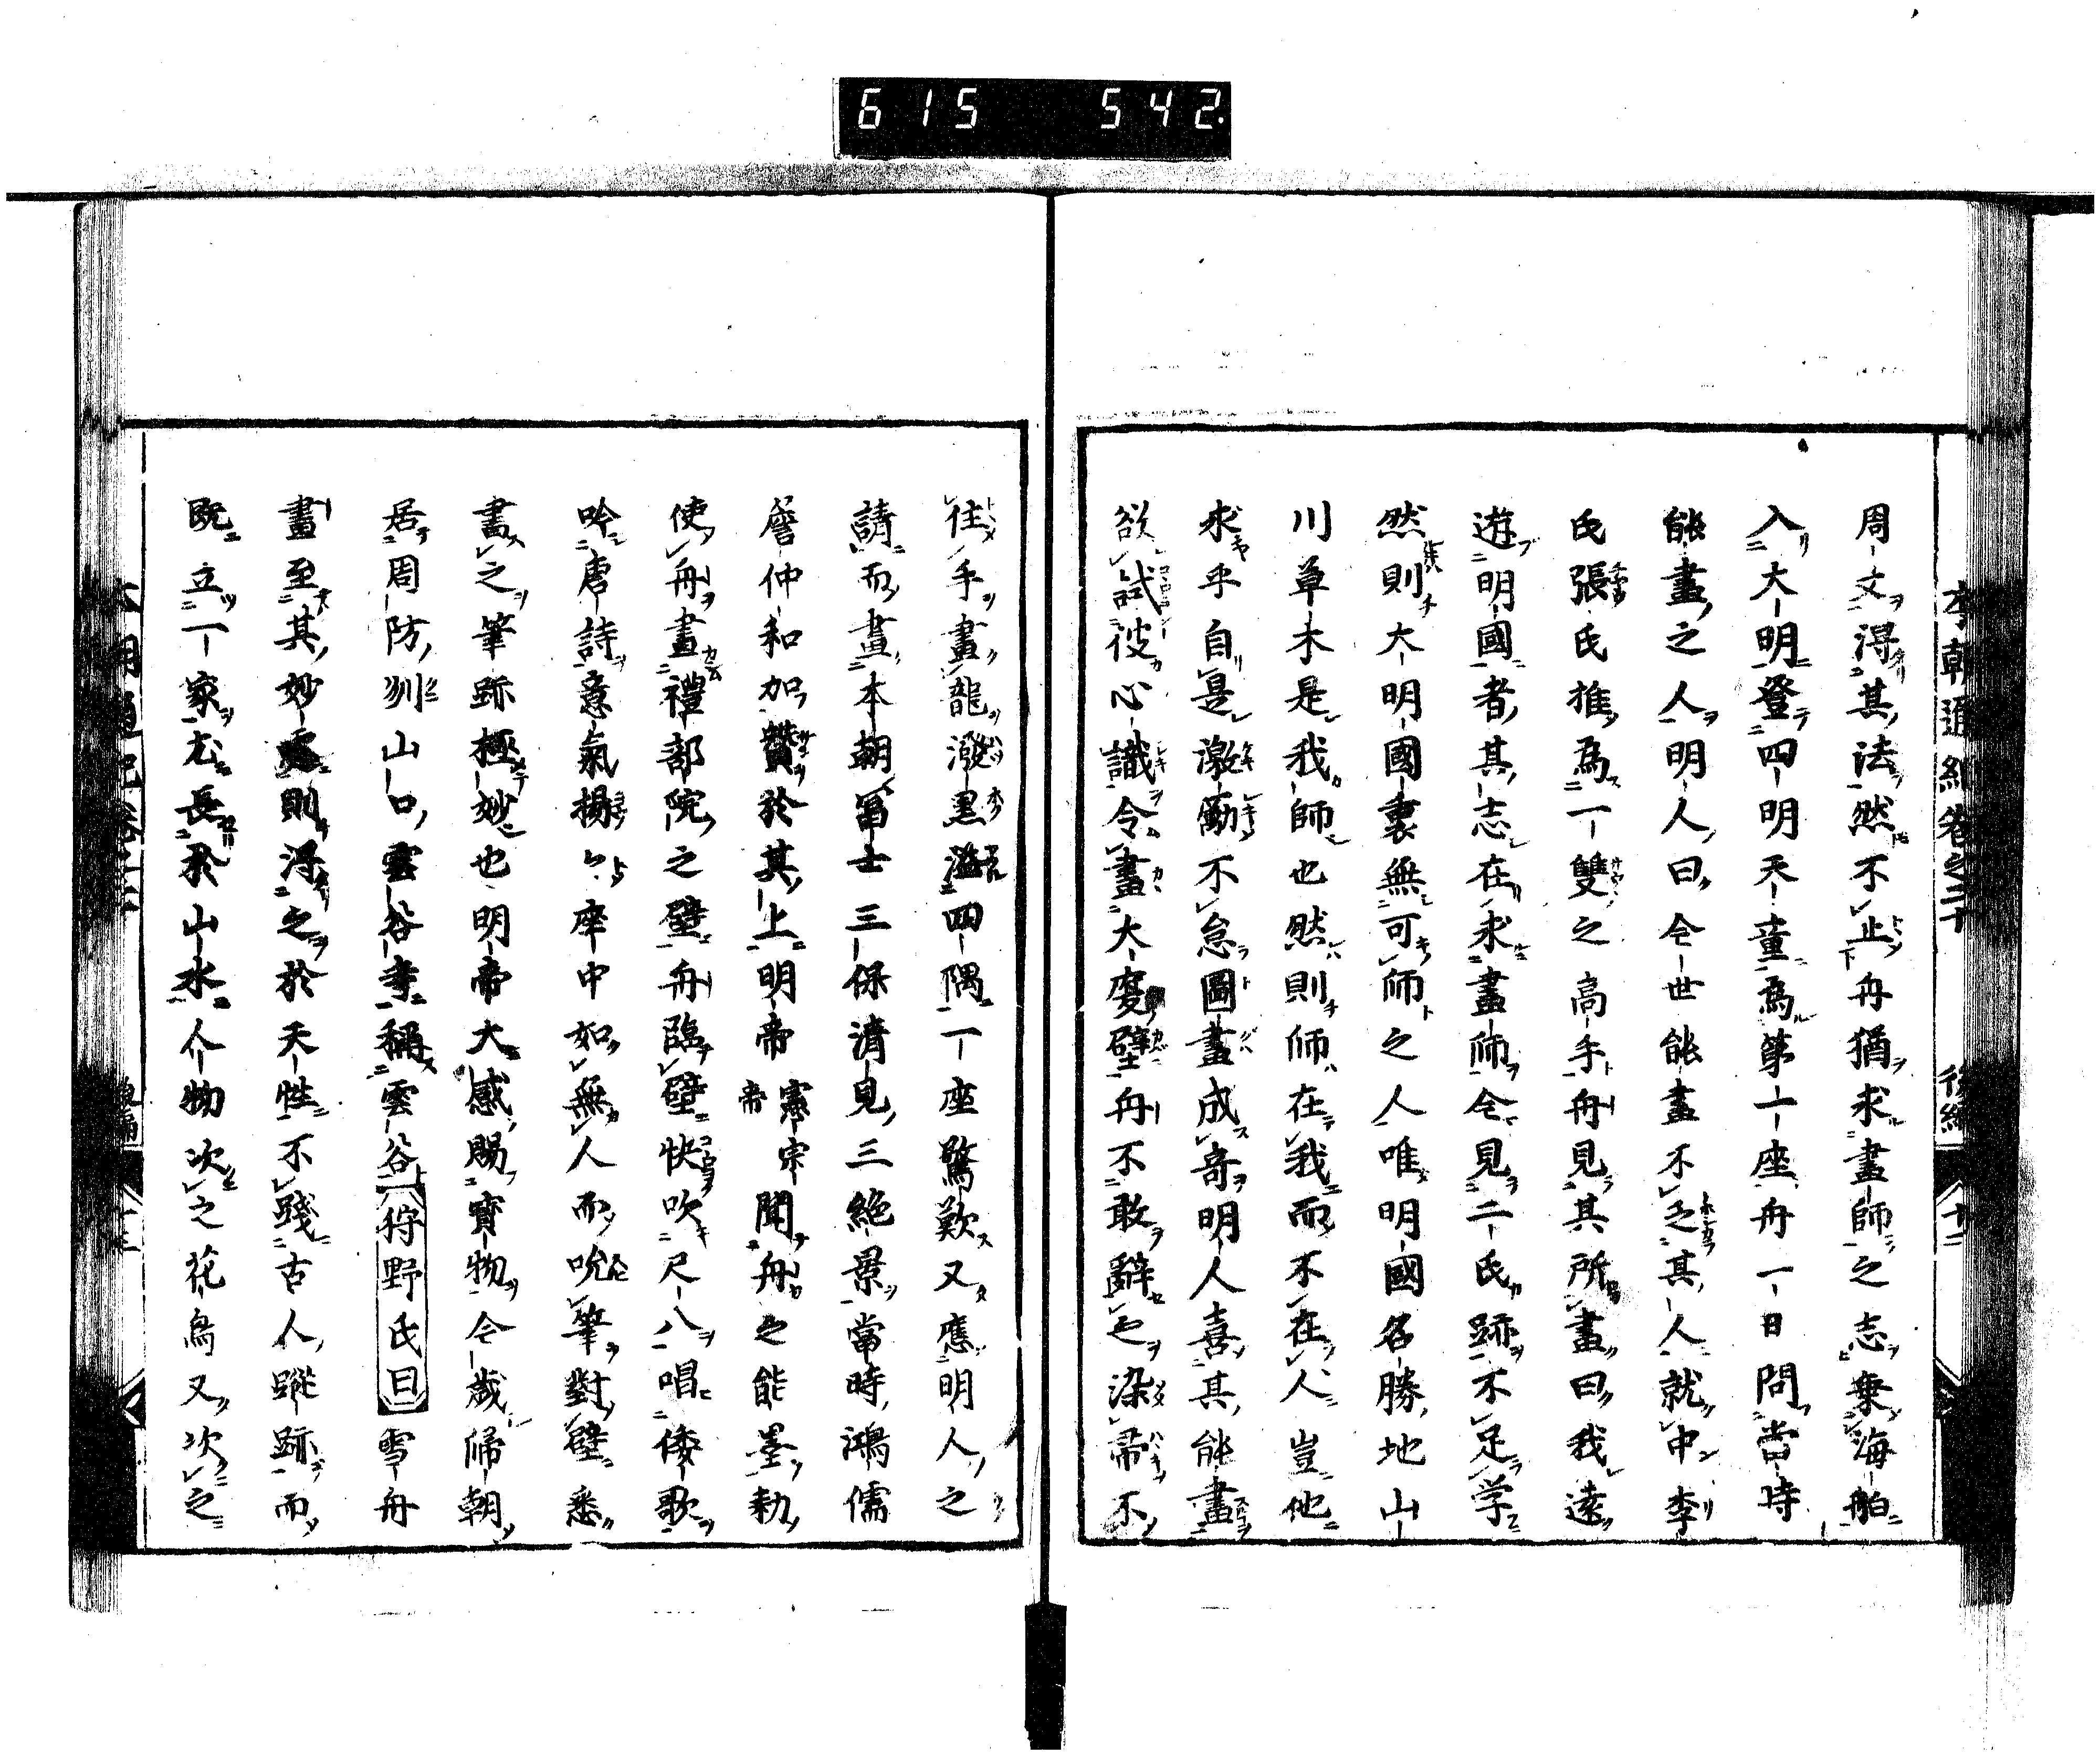 615 542
本朝通紀卷之二十 後編 十二
周文得其法然不止舟猶求畫師之志乗海舶
入大明登四明天童為第一座舟一日問當時
能畫之人明人曰今世能畫不乏其人就中李
氏張氏推為一雙之高手舟見其所畫曰我遠
遊明國者其志在求畫師今見二氏跡不足学
然則大明國裏無可師之人唯明國名勝地山
川草木是我師也然則師在我而不在人豈他
求乎自是激勵不怠圖畫成奇明人喜其能畫
欲試彼心識令畫大廈壁舟不敢辭之染帚不
往手畫龍潑墨溢四隅一座驚歎又應明人之
請而畫本朝冨士三保清見三絶景當時鴻儒
詹仲和加賛於其上明帝憲宗帝聞舟之能墨勅
使舟畫禮部院之壁舟臨壁快吹尺八唱倭歌
吟唐詩意氣揚々座中如無人而吮筆對壁悉
畫之筆跡極妙也明帝大感賜寳物今歳帰朝
居周防州山口雲谷寺稱雲谷狩野氏曰雪舟
畫至其妙處則得之於天性不踐古人蹤跡而
既立一家尤長於山水人物次之花鳥又次之
本朝通紀卷之二十 後編 十二